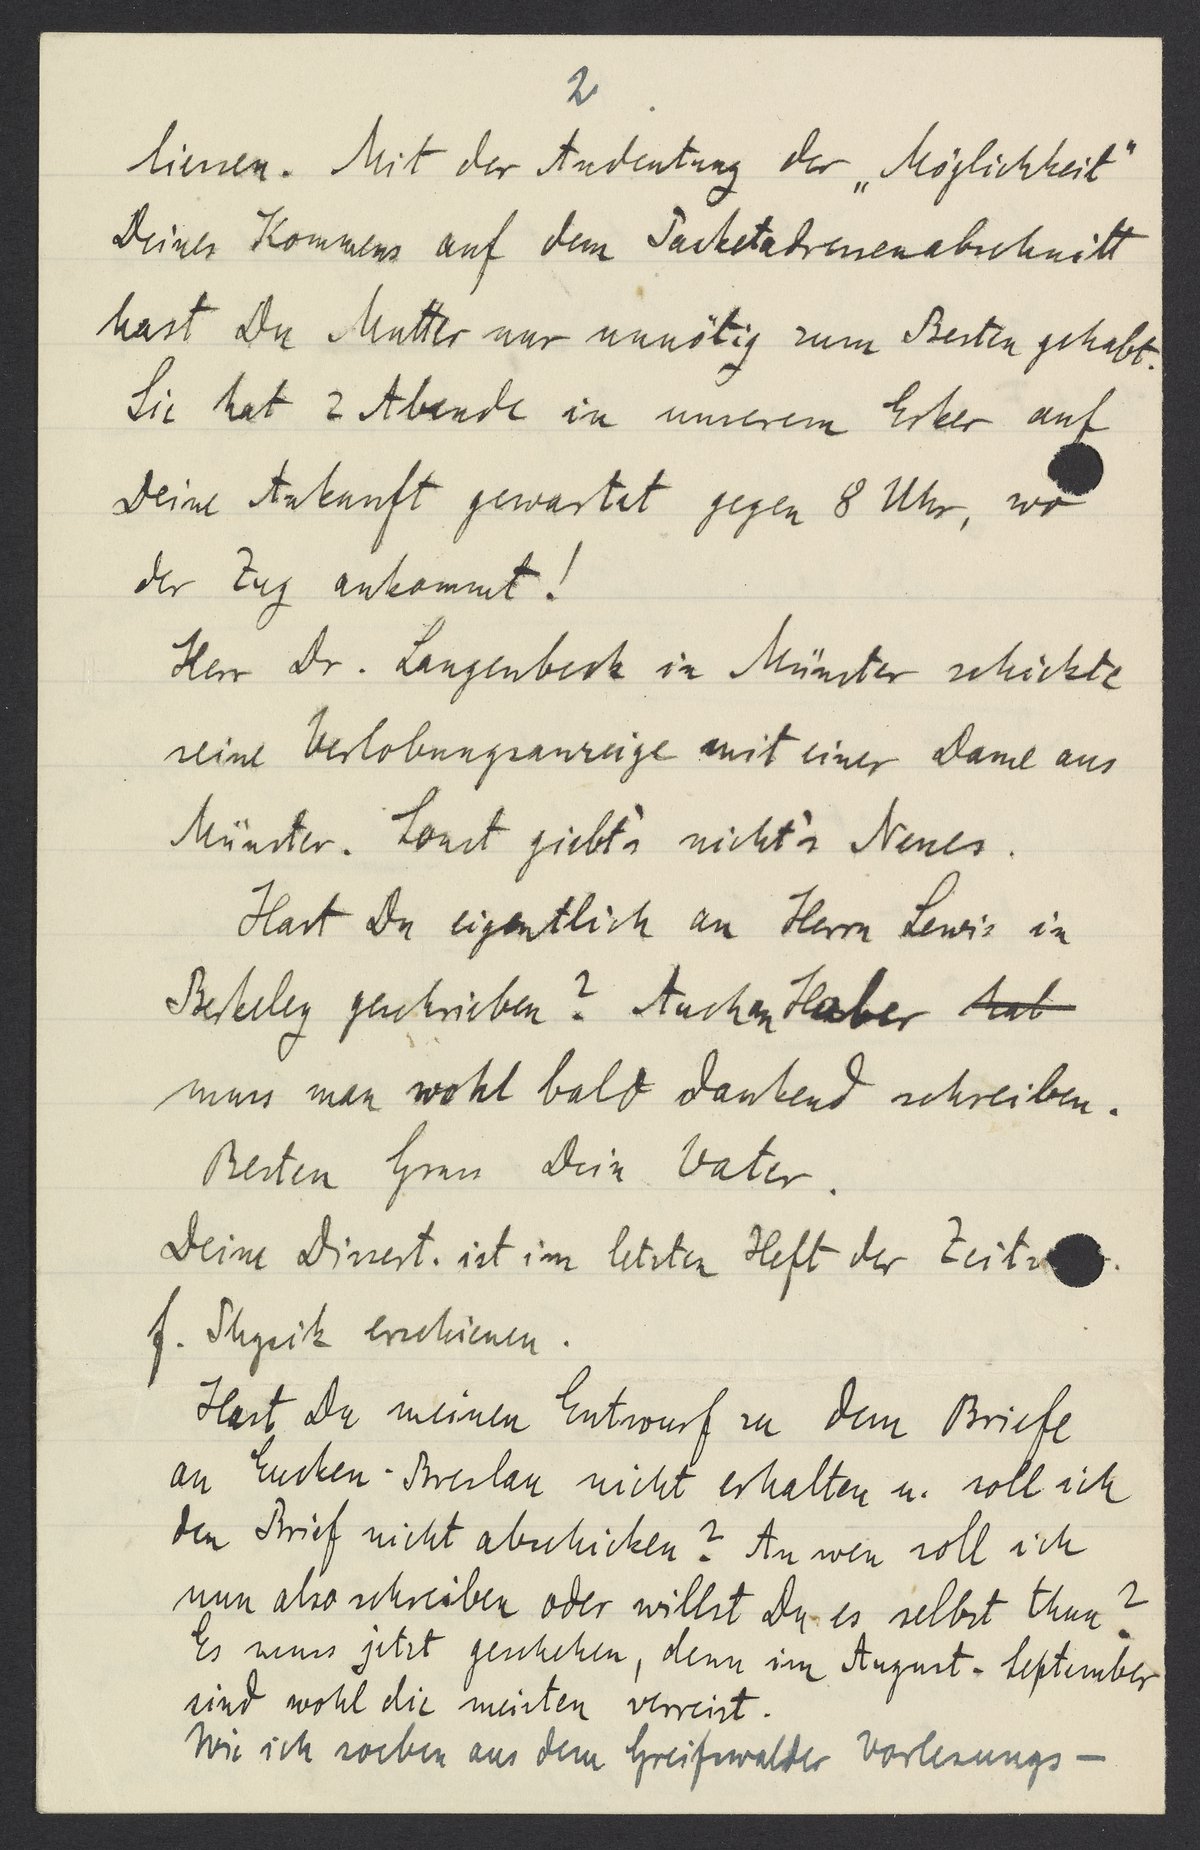 2
liessen. Mit der Andeutung der „Möglichkeit"
Deines Kommens auf dem Packetadressenabschnitt
hast Du Mutter nur unnötig zum Besten gehabt.
Sie hat 2 Abende in unserem Erker auf
Deine Ankunft gewartet gegen 8 Uhr, wo
der Zug ankommt!
Herr Dr. Langenbeck in Münster schickte
seine Verlobungsanzeige mit einer Dame aus
Münster. Sonst giebt's nicht's Neues.
Hast Du eigentlich an Herrn Lewis in
Berkeley geschrieben? Auch an Haber hab
muss man wohl bald dankend schreiben.
Besten Gruss Dein Vater.
Deine Dissert. ist im letzten Heft der
f. Physik erschienen.
Hast Du meinen Entwurf zu dem Briefe
an Eucken-Breslau nicht erhalten u. soll ich
den Brief nicht abschicken? An wen soll ich
nun also schreiben oder willst Du es selbst thun?
Es muss jetzt geschehen, denn im August-September
sind wohl die meisten verreist.
Wie ich soeben aus dem Greifswalder Vorlesungs-